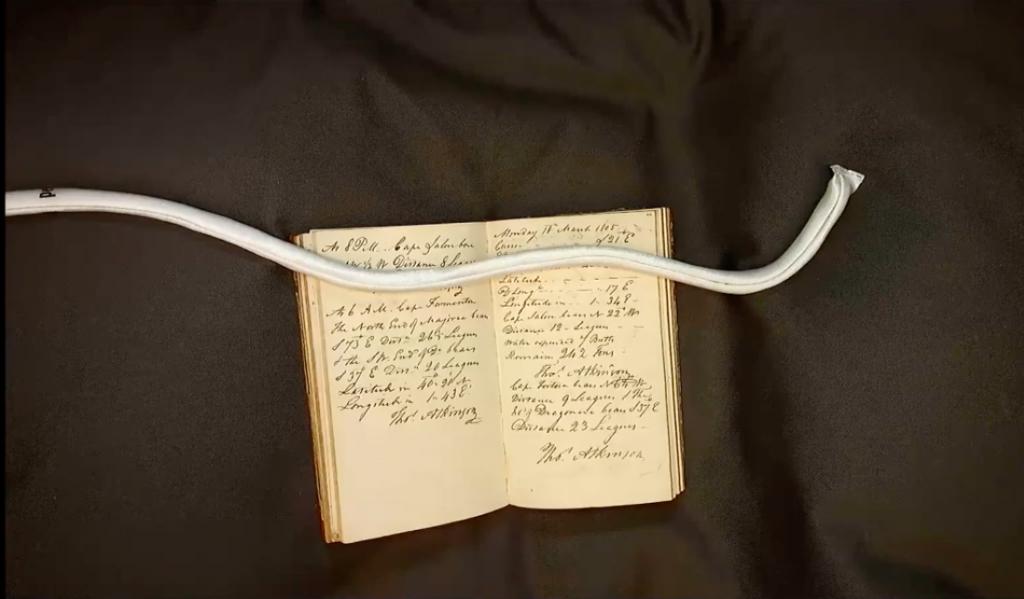 At 8 P.M. .. Cape Salou bore
W Distance 8 Leagu
At 6 A.M. Cape Formentor
The North End of Majorca bear
S 73 E Dist.ⁿ 26 Leagues
& the S.W. End of D.º bears
S 37 E Dist.ⁿ 20 Leagues
Latitude in 40.20 N
Longitude in 1..43 E
Tho.ˢ Atkinson
Monday 18 March 1805
Course S 21 E
Latitude
D Long.ᵉ 17 E
Longitude in .. 1..34 E
Cape Salou bears N 22 W
Distance 12 Leagues
Water expended 7 Butts
Remain 242 Tons
Tho.ˢ Atkinson
Cape Tortosa bears N W
Distance 9 Leagues & the
Dragonera bears S 57 E
Distance 23 Leagues
Tho.ˢ Atkinson